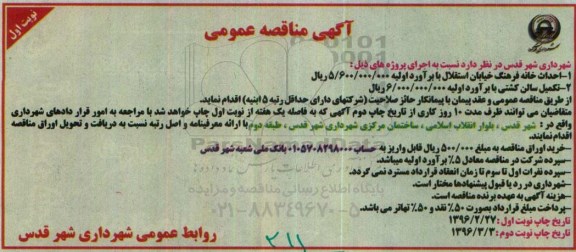 نوبت اول
آگهی مناقصه عمومی
شهرداری شهر قدس در نظر دارد نسبت به اجرای پروژه های ذیل :
۱-احداث خانه فرهنگ خیابان استقلال با برآورد اولیه ۵/۶۰۰/۰۰۰/۰۰۰ ریال
۲-تکمیل سالن کشتی با برآورد اولیه ۶/۰۰۰/۰۰۰/۰۰۰ ریال
از طریق مناقصه عمومی و عقد پیمان با پیمانکار حائز صلاحیت (شرکتهای دارای حداقل رتبه ۵ ابنیه) اقدام نماید.
متقاضیان می توانند ظرف مدت ۱۰ روز کاری از تاریخ چاپ دوم آگهی که به فاصله یک هفته از نوبت اول چاپ خواهد شد با مراجعه به امور قرار دادهای شهرداری
واقع در : شهر قدس ، بلوار انقلاب اسلامی ، ساختمان مرکزی شهرداری شهر قدس ، طبقه دوم با ارائه معرفینامه و اصل رتبه نسبت به دریافت و تحویل اوراق مناقصه
اقدام نمایند.
-خرید اوراق مناقصه به مبلغ ۵۰۰/۰۰۰ ریال قابل واریز به حساب ۰۱۰۵۷۰۸۲۹۸۰۰۰ بانک ملی شعبه شهر قدس
-سپرده شرکت در مناقصه معادل ۵٪ برآورد اولیه میباشد.
-سپرده نفرات اول تا سوم تا زمان انعقاد قرارداد مسترد نمی گردد.
-شهرداری در رد یا قبول پیشنهادها مختار است.
-هزینه آگهی به عهده برنده مناقصه است.
-پرداخت مبلغ قرارداد بصورت ۵۰٪ نقد و ۵۰٪ تهاتر می باشد.
تاریخ چاپ نوبت اول : ۱۳۹۶/۲/۲۷
تاریخ چاپ نوبت دوم : ۱۳۹۶/۳/۳
روابط عمومی شهرداری شهر قدس
پایگاه اطلاع رسانی مناقصه و مزایده
۰۲۱-۸۸۳۴۹۶۷۰-۵